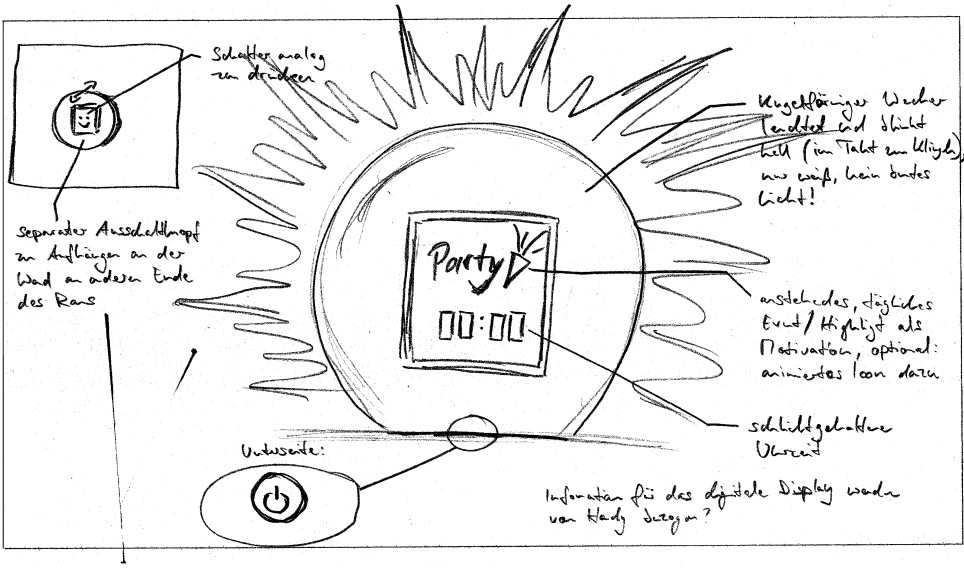 Schalter analog
zum drücken
separater Ausschaltknopf
zu Aufhängen an der
Wand an anderen Ende
des Raums
Kugelförmiger Wecker
leuchtet und blinkt
hell (im Takt zum Klingeln),
nur weiß, kein buntes
Licht!
Party
00:00
anstehendes, tägliches
Event/Highlight als
Motivation, optional:
animiertes Icon dazu
schlichtgehaltene
Uhrzeit
Unterseite:
Information für das digitale Display werden
von Handy bezogen?